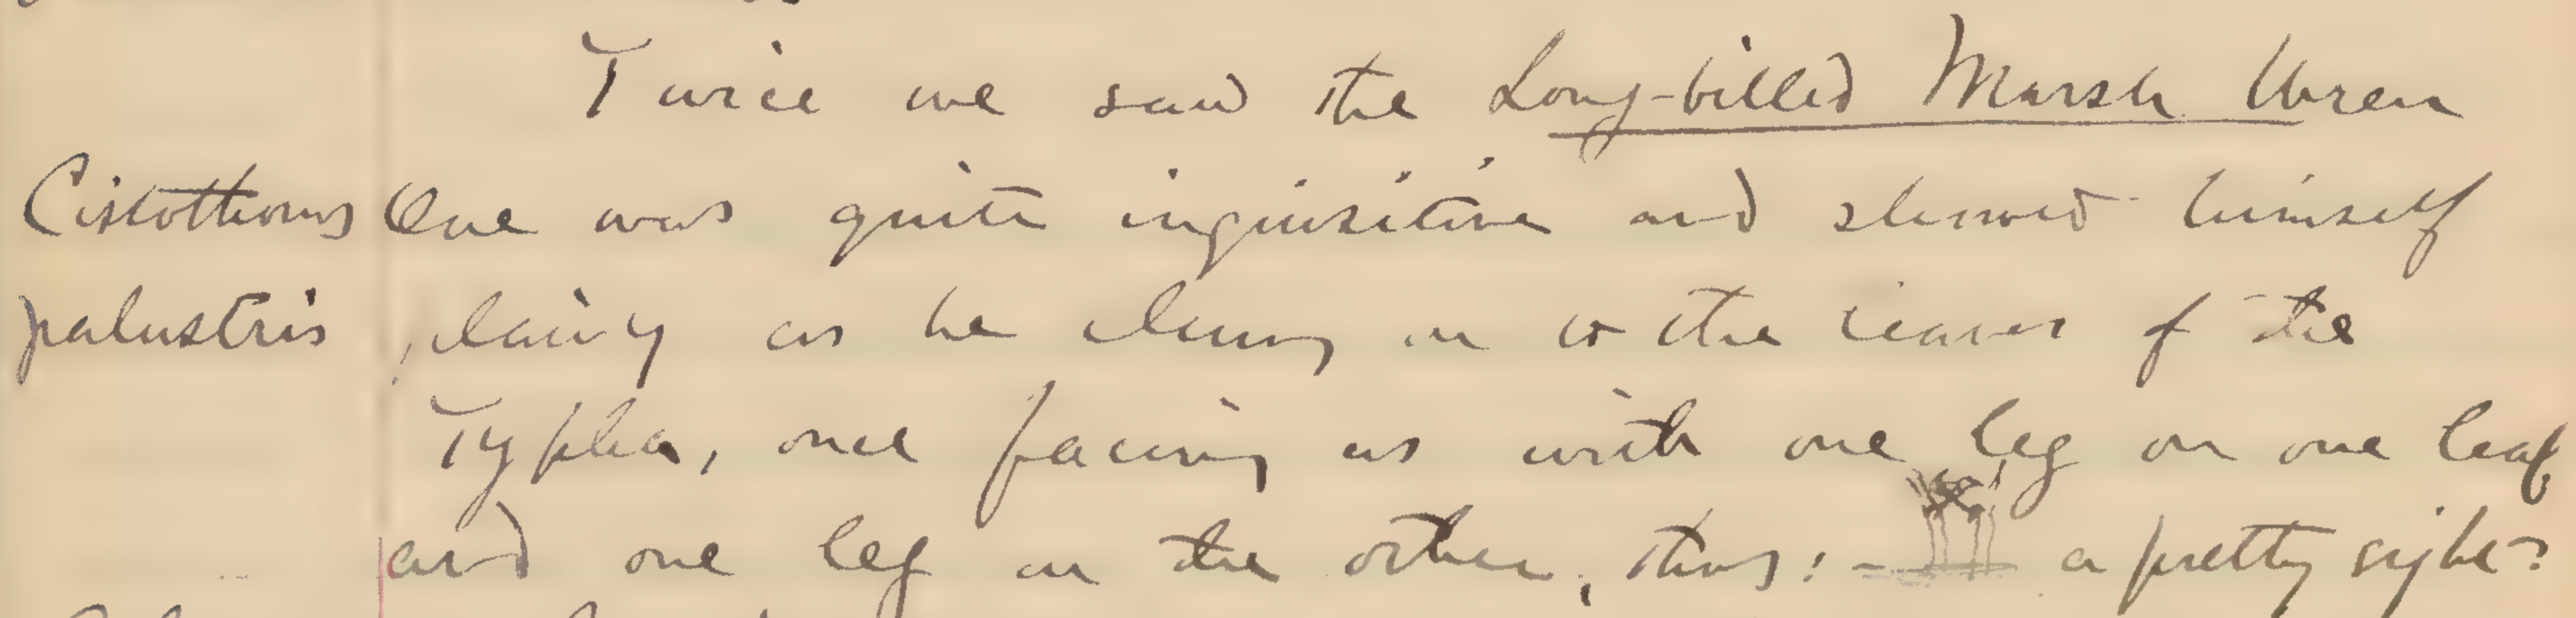 Twice we saw the Long-billed Marsh Wren
Cistothorus One was quite inquisitive and showed himself
palustris plainly as he clung on to the leaves of the
Typha, once facing us with one leg on one leaf
and one leg on the other, thus:- a pretty sight